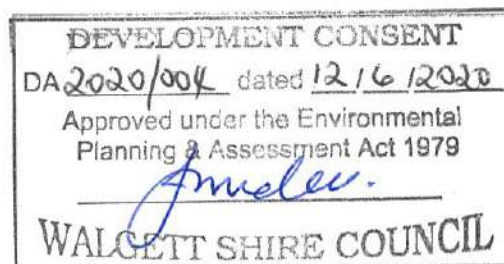 DEVELOPMENT CONSENT
DA 2020/004 dated 12/6/2020
Approved under the Environmental
Planning & Assessment Act 1979
WALGETT SHIRE COUNCIL